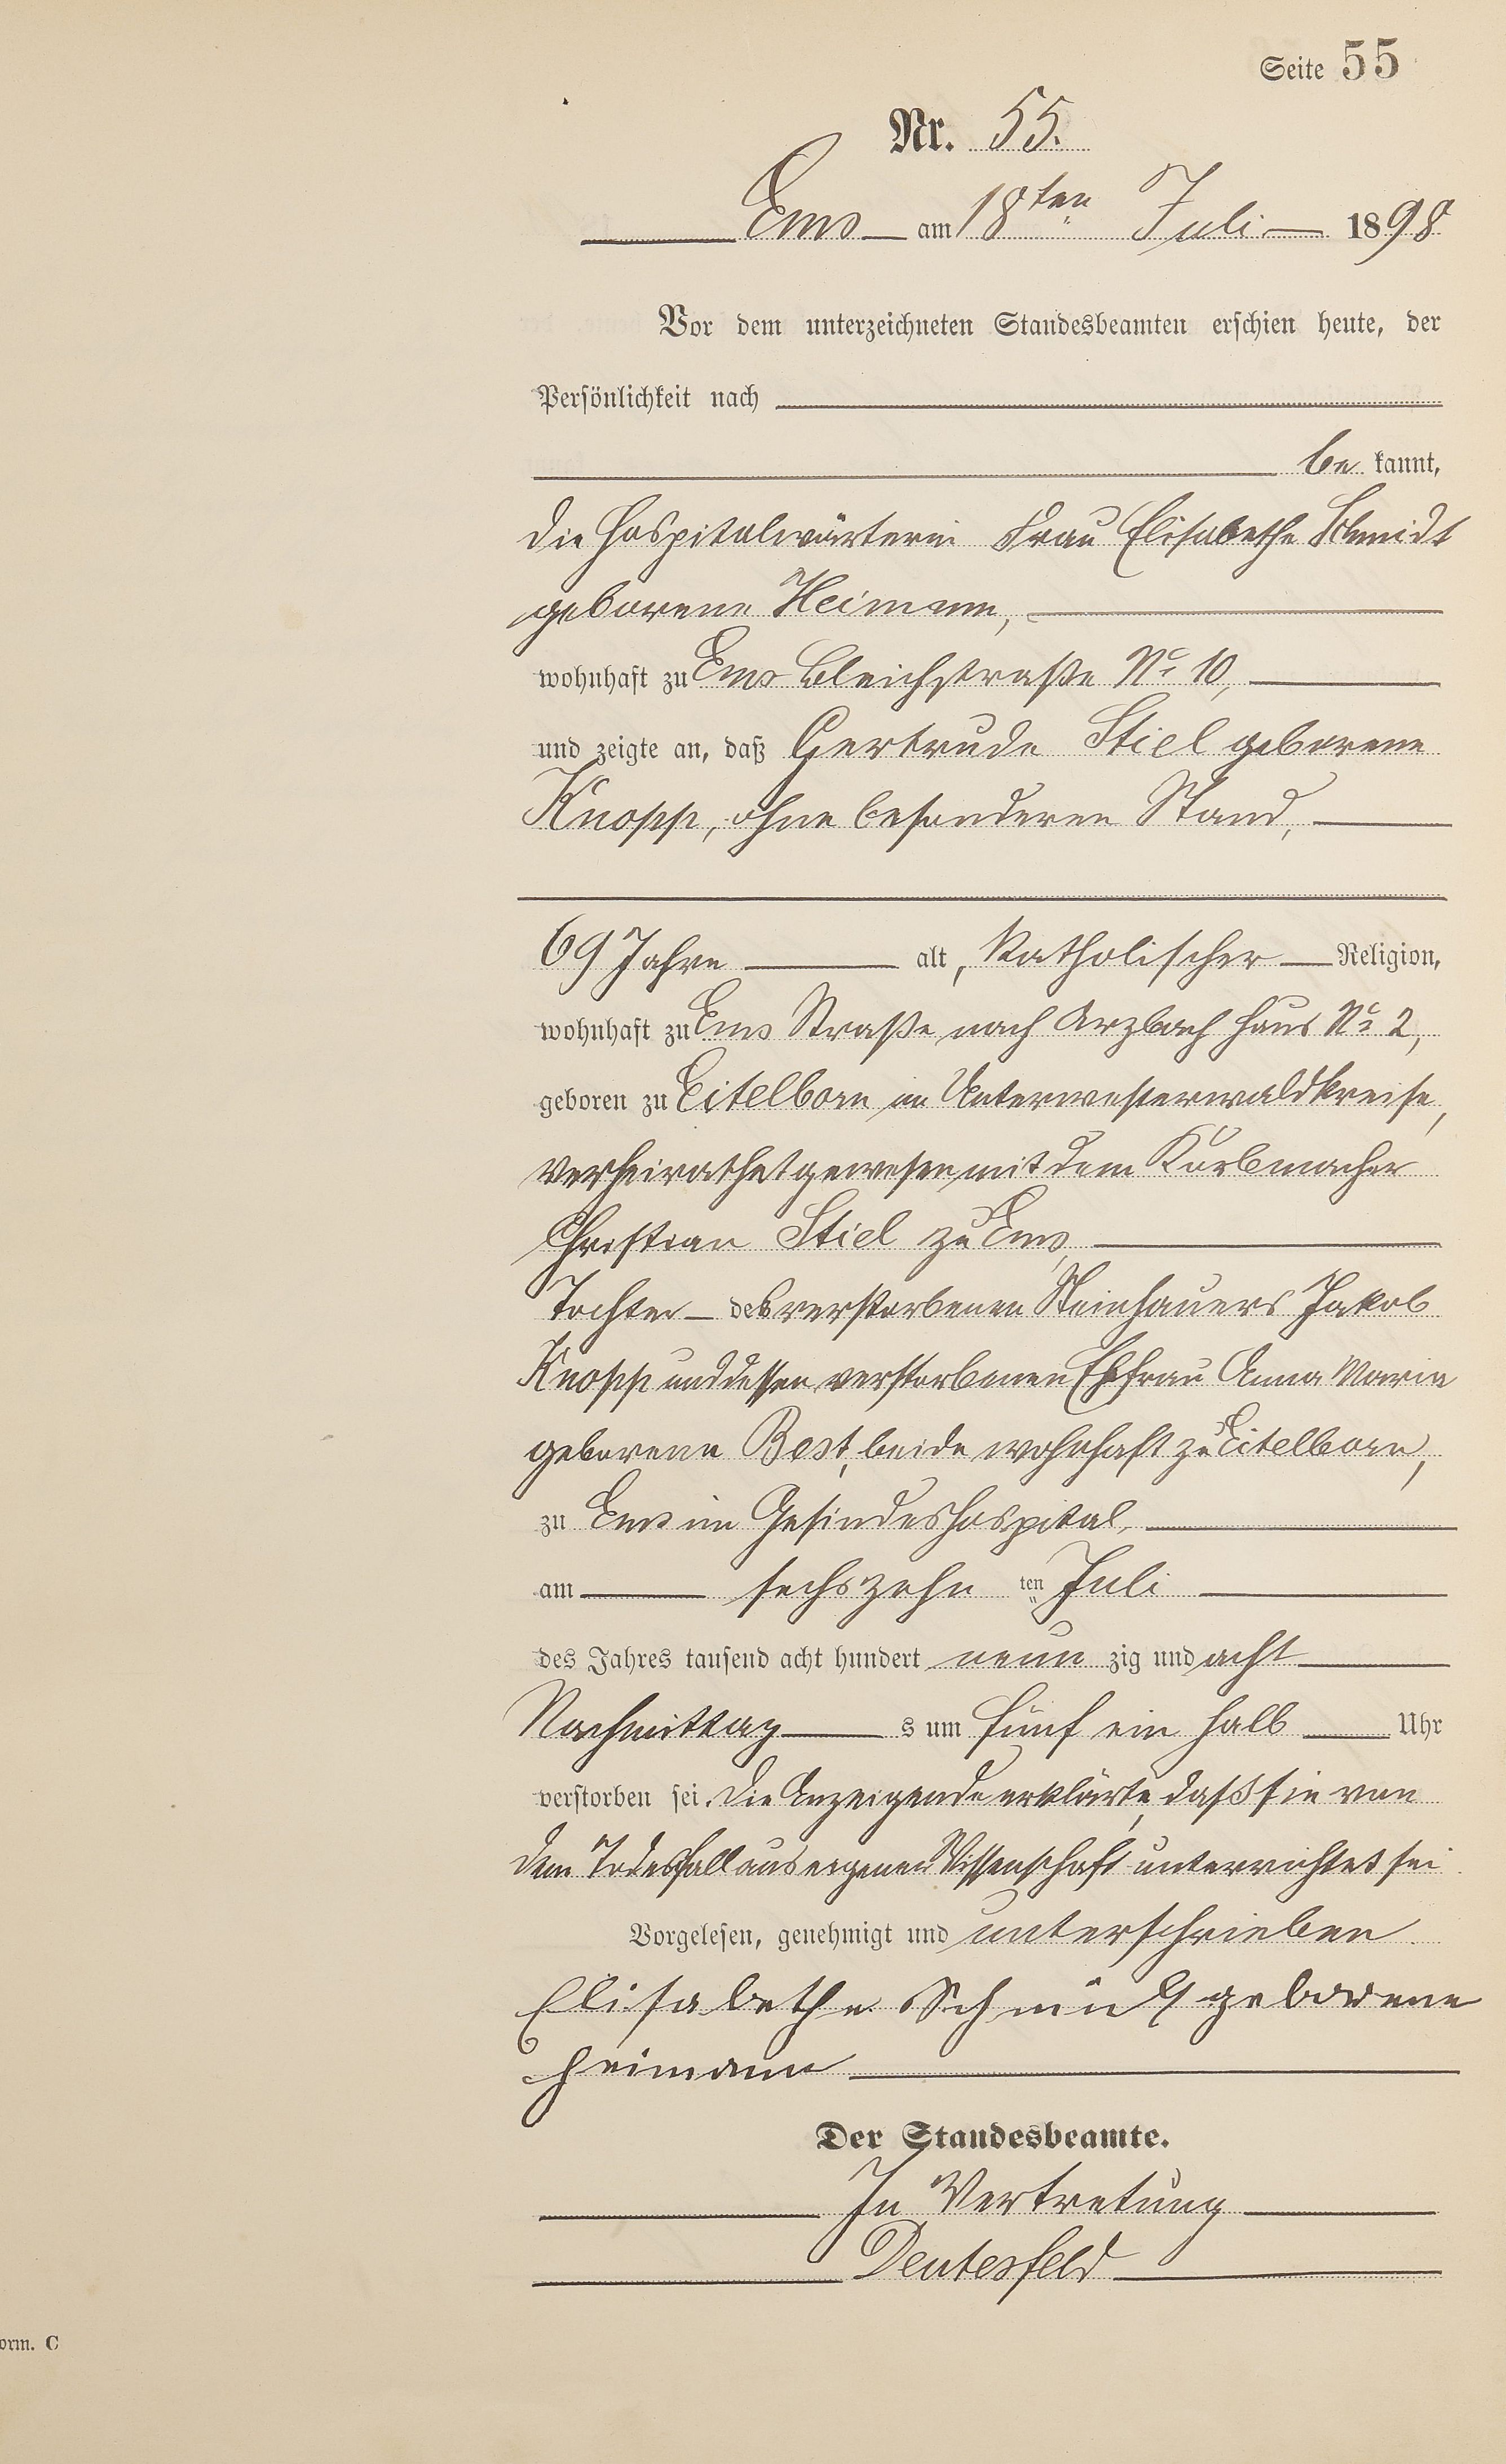 Seite 55
Nr. 55.
Ems am 18ten Juli 1898
Vor dem unterzeichneten Standesbeamten erschien heute, der
Persönlichkeit nach
be kannt,
die Hospitalwärterin Frau Elisabethe Schmidt
geborene Heimann,
wohnhaft zu Ems Bleichstraße No 10,
und zeigte an, daß Gertrude Stiel geborene
Knopp, ohne besonderen Stand,
69 Jahre alt, katholischer Religion,
wohnhaft zu Ems Straße nach Arzbach Haus No 2,
geboren zu Eitelborn im Unterwesterwaldkreise,
verheirathet gewesen mit dem Korbmacher
Christian Stiel zu Ems,
Tochter des verstorbenen Steinhauers Jakob
Knopp und dessen verstorbenen Ehefrau Anna Maria
geborene Best, beide wohnhaft zu Eitelborn,
zu Ems im Gesindeshospital,
am sechszehn ten Juli
des Jahres tausend acht hundert neun zig und acht
Nachmittag s um fünf ein halb Uhr
verstorben sei. Die Anzeigende erklärte, daß sie von
dem Todesfall aus eigener Wissenschaft unterrichtet sei
Vorgelesen, genehmigt und unterschrieben
Elisabethe Schmidt geborene
Heimann
Der Standesbeamte.
In Vertretung
Deutesfeld
orm. C